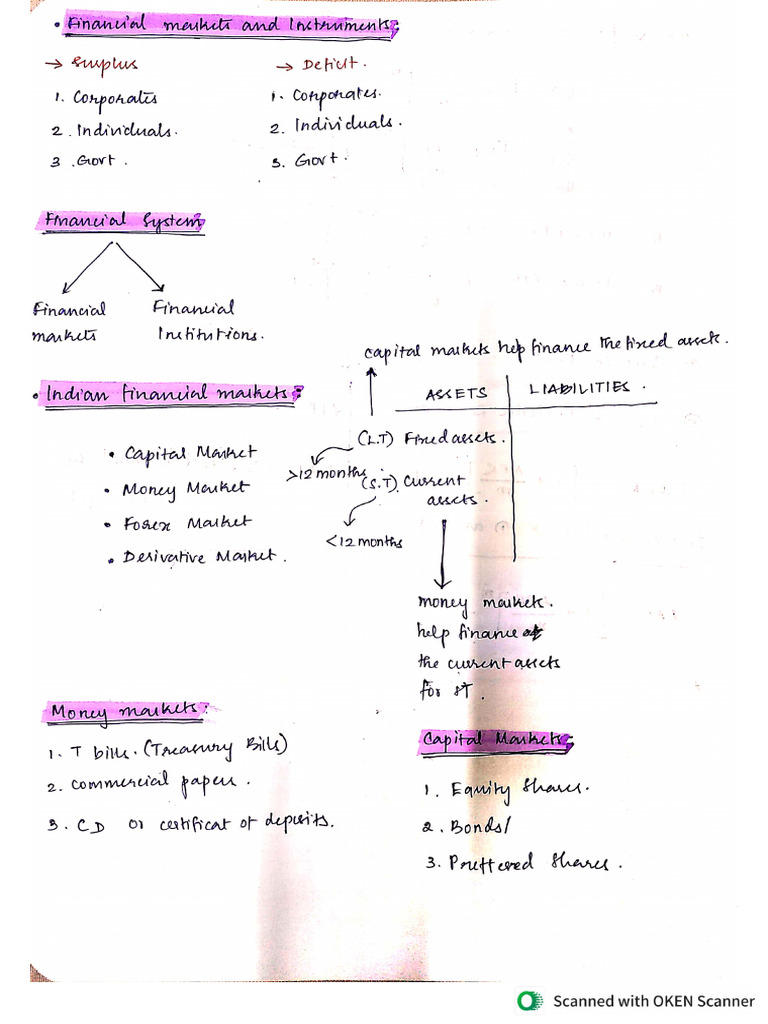 • Financial markets and Instruments:
→ Surplus
1. Corporates
2. Individuals.
3. Govt.
→ Deficit.
1. Corporates.
2. Individuals.
3. Govt.
Financial System
Financial markets
Financial Institutions.
• Indian financial markets:
• Capital Market
• Money Market
• Forex Market
• Derivative Market.
capital markets help finance the fixed assets.
ASSETS
LIABILITIES.
(L.T) Fixed assets.
>12 months
(S.T). Current
assets.
<12 months
money markets.
help finance
the current assets
for ST.
Money markets:
1. T bills. (Treasury Bills)
2. commercial papers.
3. CD or certificat of deposits.
Capital Markets:
1. Equity Shares.
2. Bonds/
3. Preffered Shares.
Scanned with OKEN Scanner